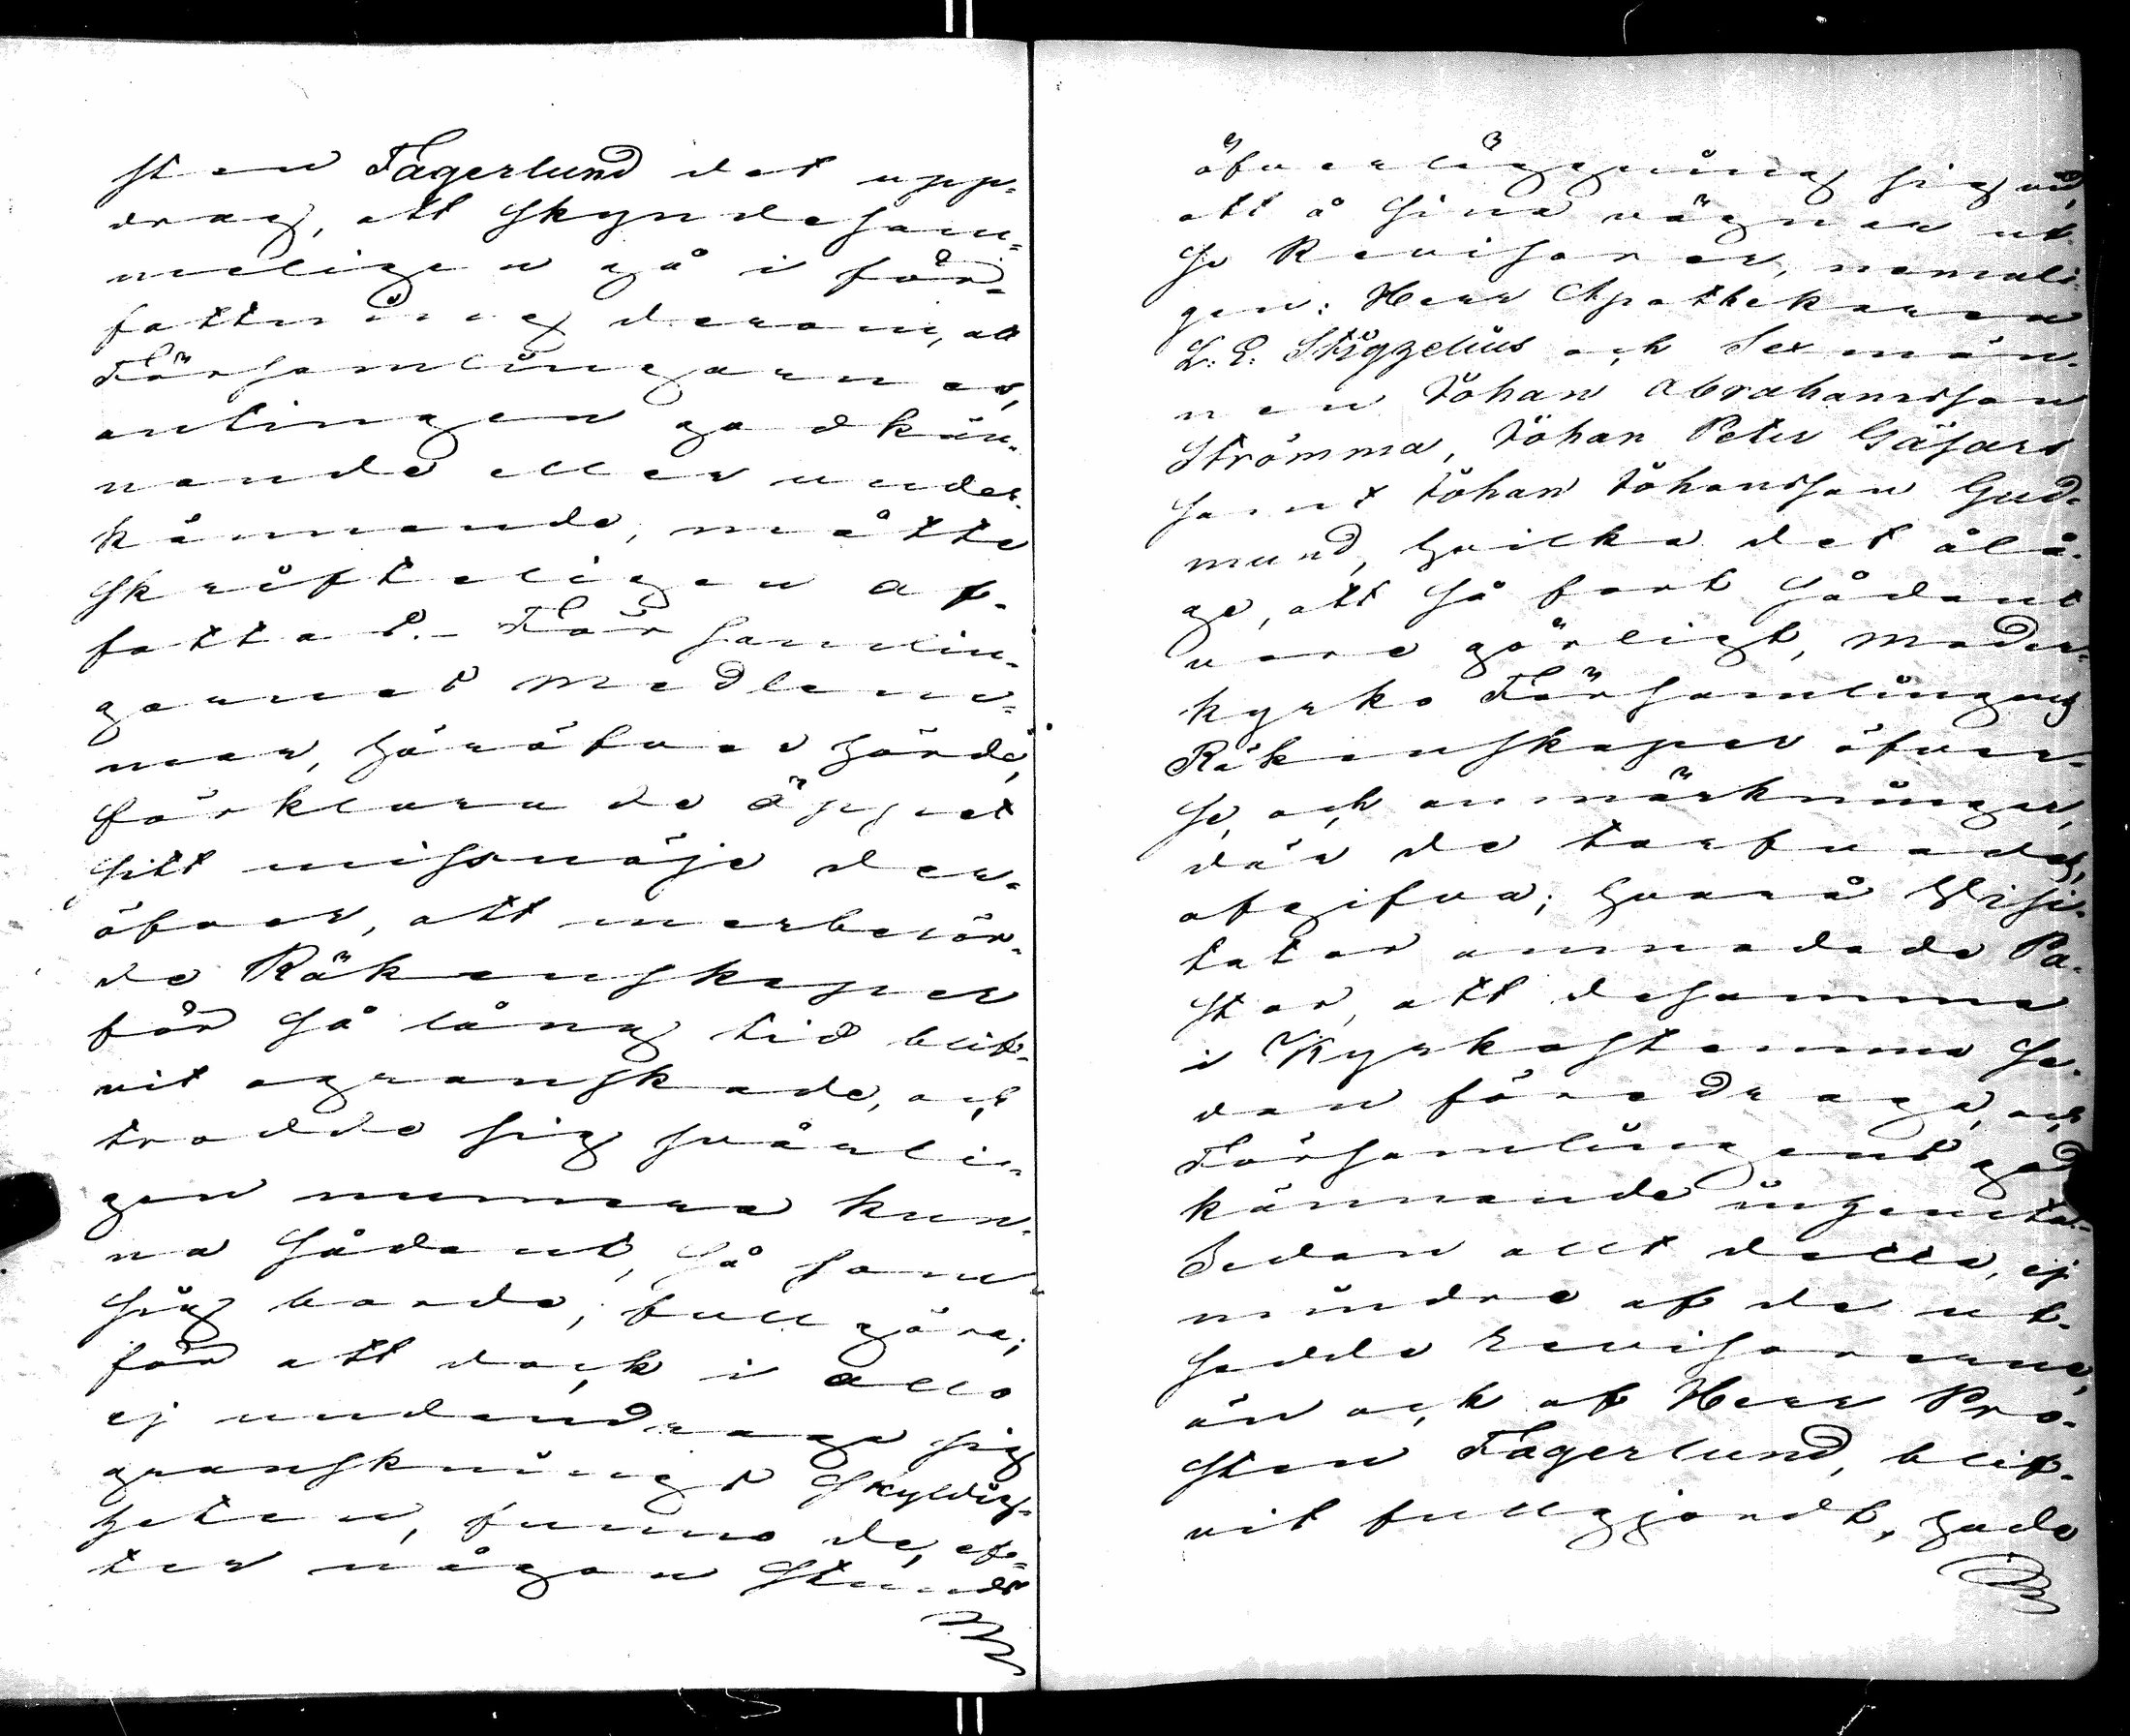 sten Fagerlund det upp-
drag, att skyndesam-
meligen gå i för-
fattning derom, att
Församlingarnes,
antingen godkän-
nande eller under-
kännande, måtte
skrifteligen af-
fattas. - Församlin-
garnes Medlem-
mar, häröfver hörde,
förklarade öppet
sitt missnöje der-
öfver, att merberör-
de Räkenskaper
för så lång tid blif-
vit ogranskade, och
trodde sig svårli-
gen numera kun-
na sådant, så som
sig borde, fullgöra;
för att dock i allo
ej undandraga sig
gransknings skyldig-
heten, funno de, ef-
ter någon stunds
öfverläggning sig vid,
att å sina vägnar ut-
se Revisorer, nemli-
gen: Herr Apothekaren
L. E. Stigzelius och Sexmän-
nen Johan Abrahamsson
Strömma, Johan Peter Gäsars
samt Johan Johansson Gud-
mund, hvilka det ålå-
ge, att så fort sådant
vore görligt, Moder-
kyrko Församlingens
Räkenskaper öfver-
se, och anmärkningar,
där de tarfvades,
afgifva; hvarå Visi-
tator anmodade Pa-
stor, att desamma
i Kyrkostemma se-
dan föredraga, och
Församlingens god-
kännande inhemta.
Sedan allt detta, ej
mindre af de ut-
sedde Revisorerne,
än ock af Herr Pro-
sten Fagerlund, blif-
vit fullgjordt, hade